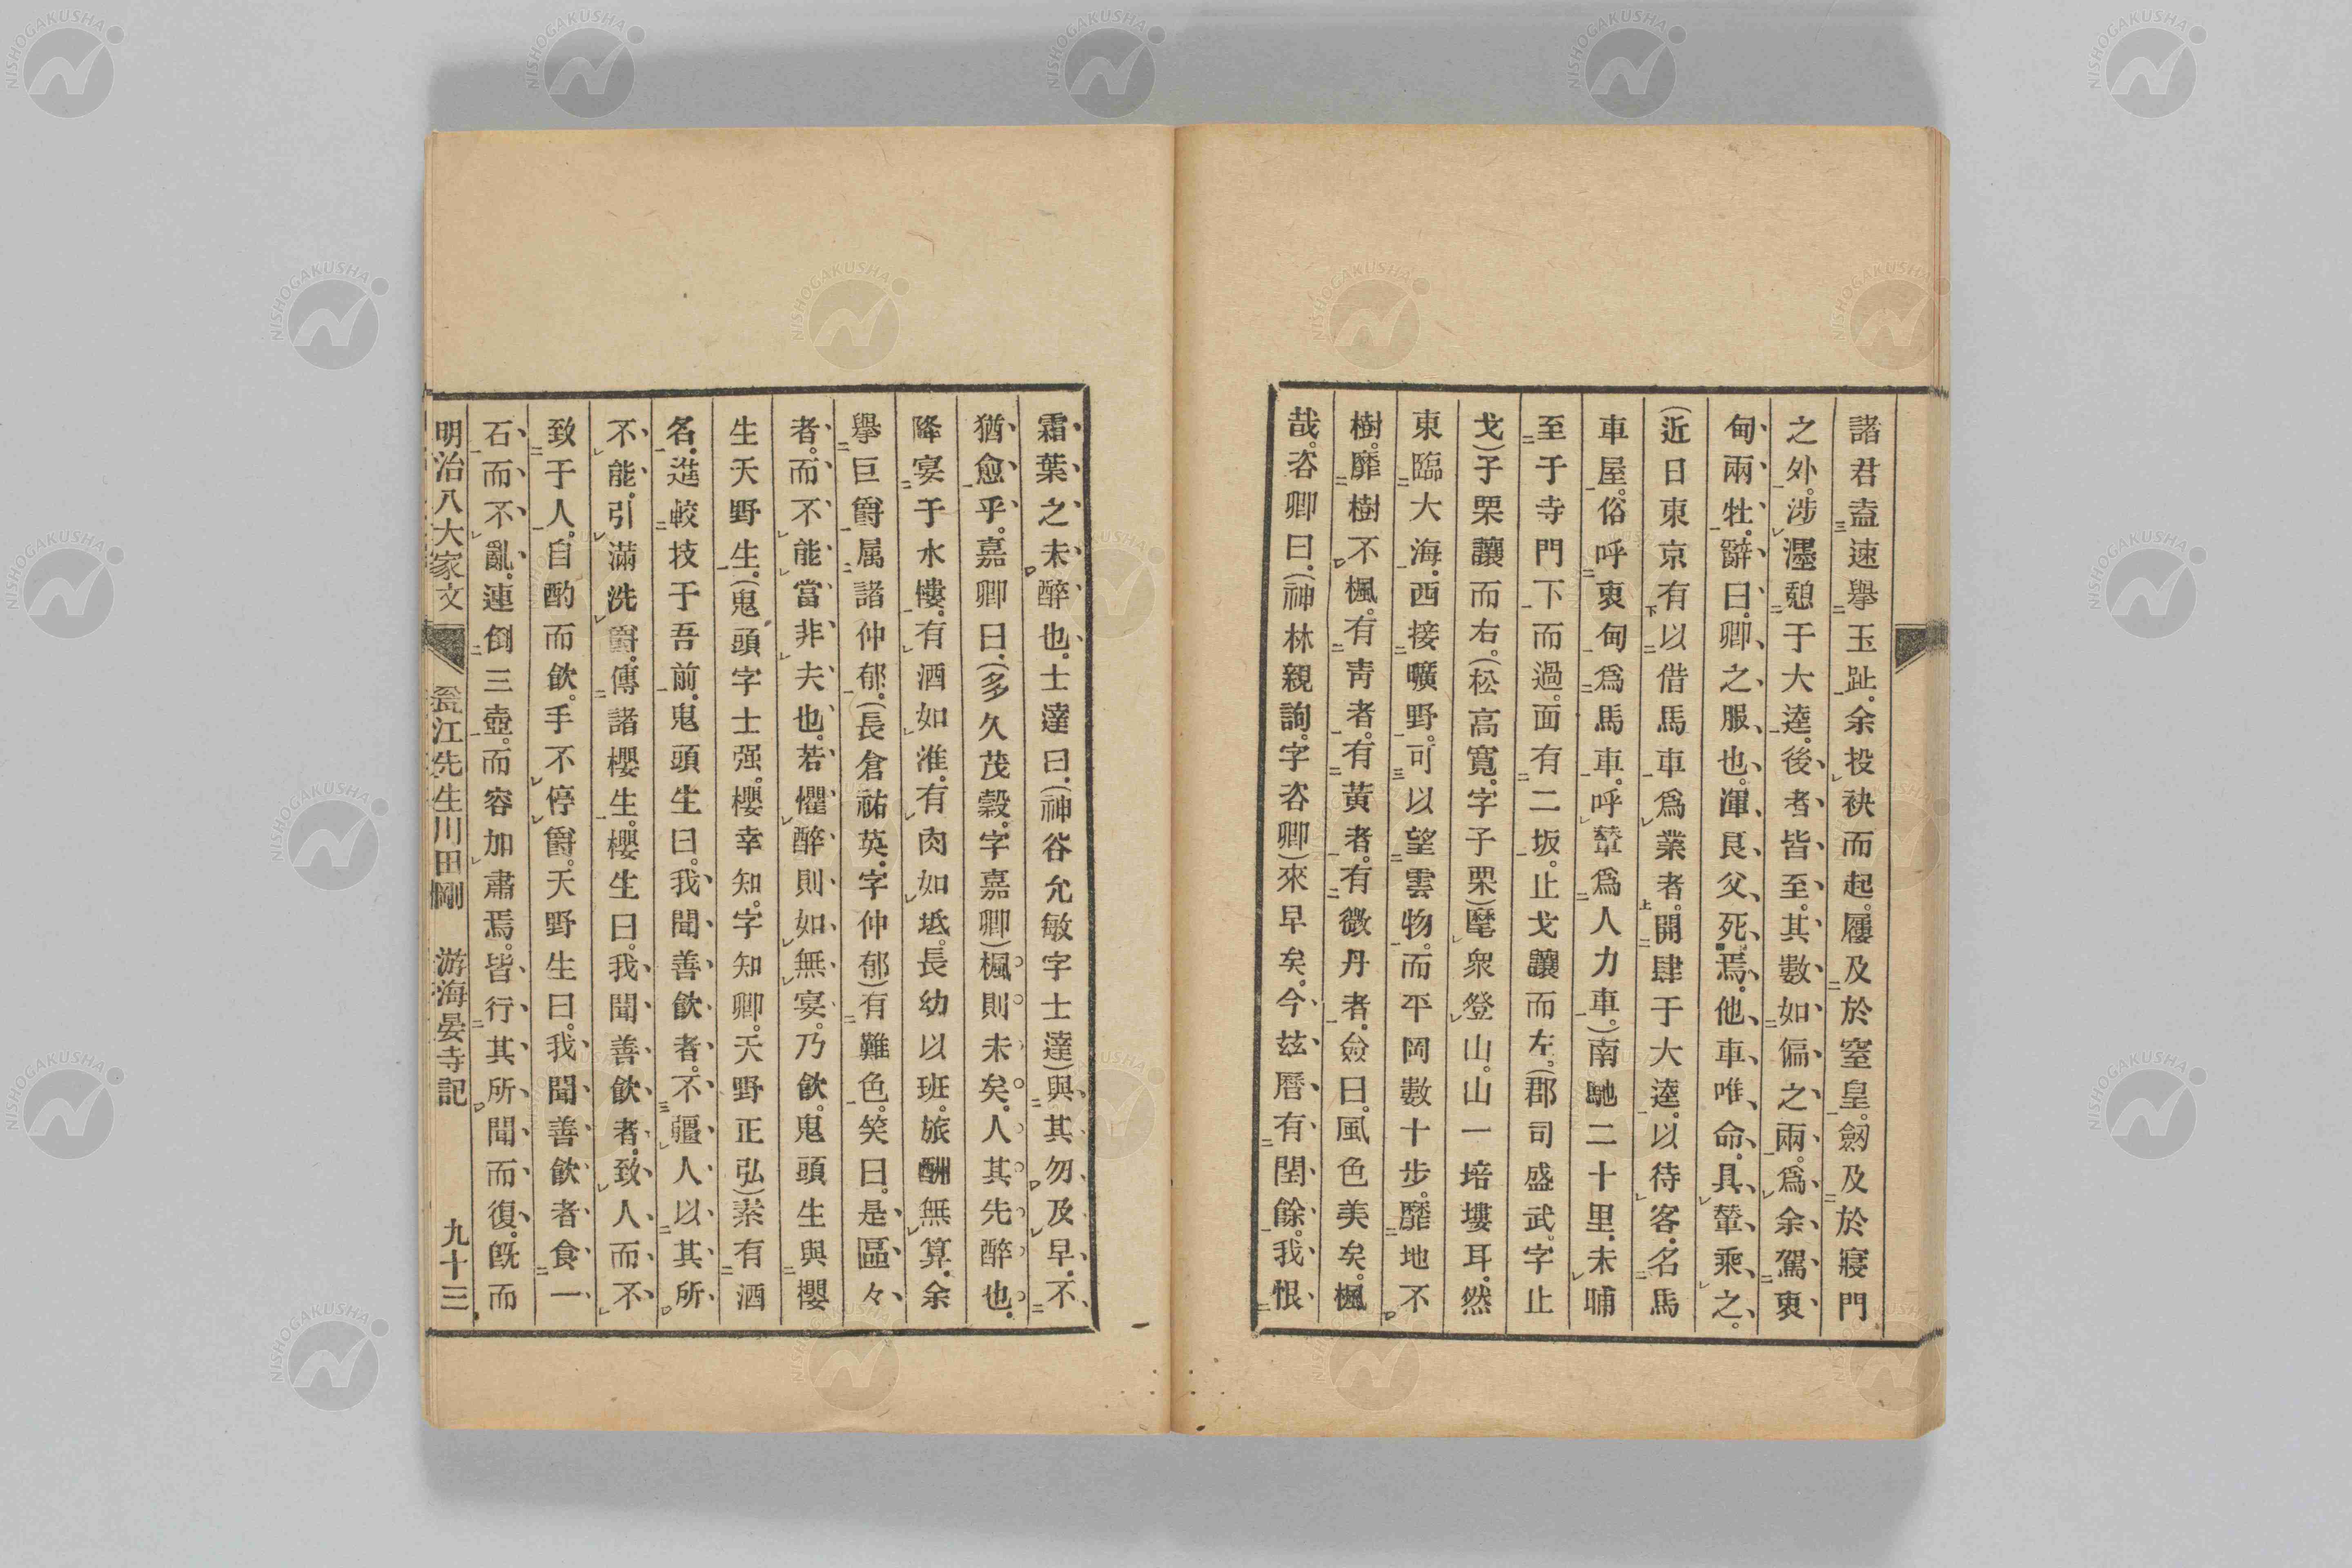 諸君盍速擧玉趾。余投袂而起。屨及於窒皇。劔及於寢門
之外。涉㶟憩于大逵。後者皆至。其數如偏之兩。爲余駕衷
甸兩牡。辭曰。卿之服也。渾良父死焉。他車唯命。具輦乘之。
(近日東京有以借馬車爲業者。開肆于大逵。以待客。名馬
車屋。俗呼衷甸爲馬車。呼輦爲人力車。)南馳二十里。未晡
至于寺門下而過。面有二坂。止戈讓而左。(郡司盛武。字止
戈)子栗讓而右。(松高寬。字子栗)麾衆登山。山一培塿耳。然
東臨大海。西接曠野。可以望雲物。而平岡數十步。靡地不
樹。靡樹不楓。有靑者。有黃者。有微丹者。僉曰。風色美矣。楓
哉。咨卿曰。(神林親詢。字咨卿)來早矣。今玆曆有閏餘。我恨
霜葉之未醉也。士達曰。(神谷允敏字士達)與其勿及早。不
猶愈乎。嘉卿曰。(多久茂穀。字嘉卿)楓則未矣。人其先醉也。
降宴于水樓。有酒如淮。有肉如坻。長幼以班。旅酬無算。余
擧巨爵属諸仲郁。(長倉祐英。字仲郁)有難色。笑曰。是區々
者。而不能當非夫也。若懼醉則如無宴。乃飮。鬼頭生與櫻
生天野生。(鬼頭字士强。櫻幸知。字知卿。天野正弘)素有酒
名。進較技于吾前。鬼頭生曰。我聞善飮者。不彊人以其所
不能。引滿洗爵。傳諸櫻生。櫻生曰。我聞善飮者。致人而不
致于人。自酌而飮。手不停爵。天野生曰。我聞善飮者食一
石而不亂。連倒三壺。而容加肅焉。皆行其所聞而復。旣而
明治八大家文 甕江先生川田剛 游海晏寺記 九十三
NISHOGAKUSHA